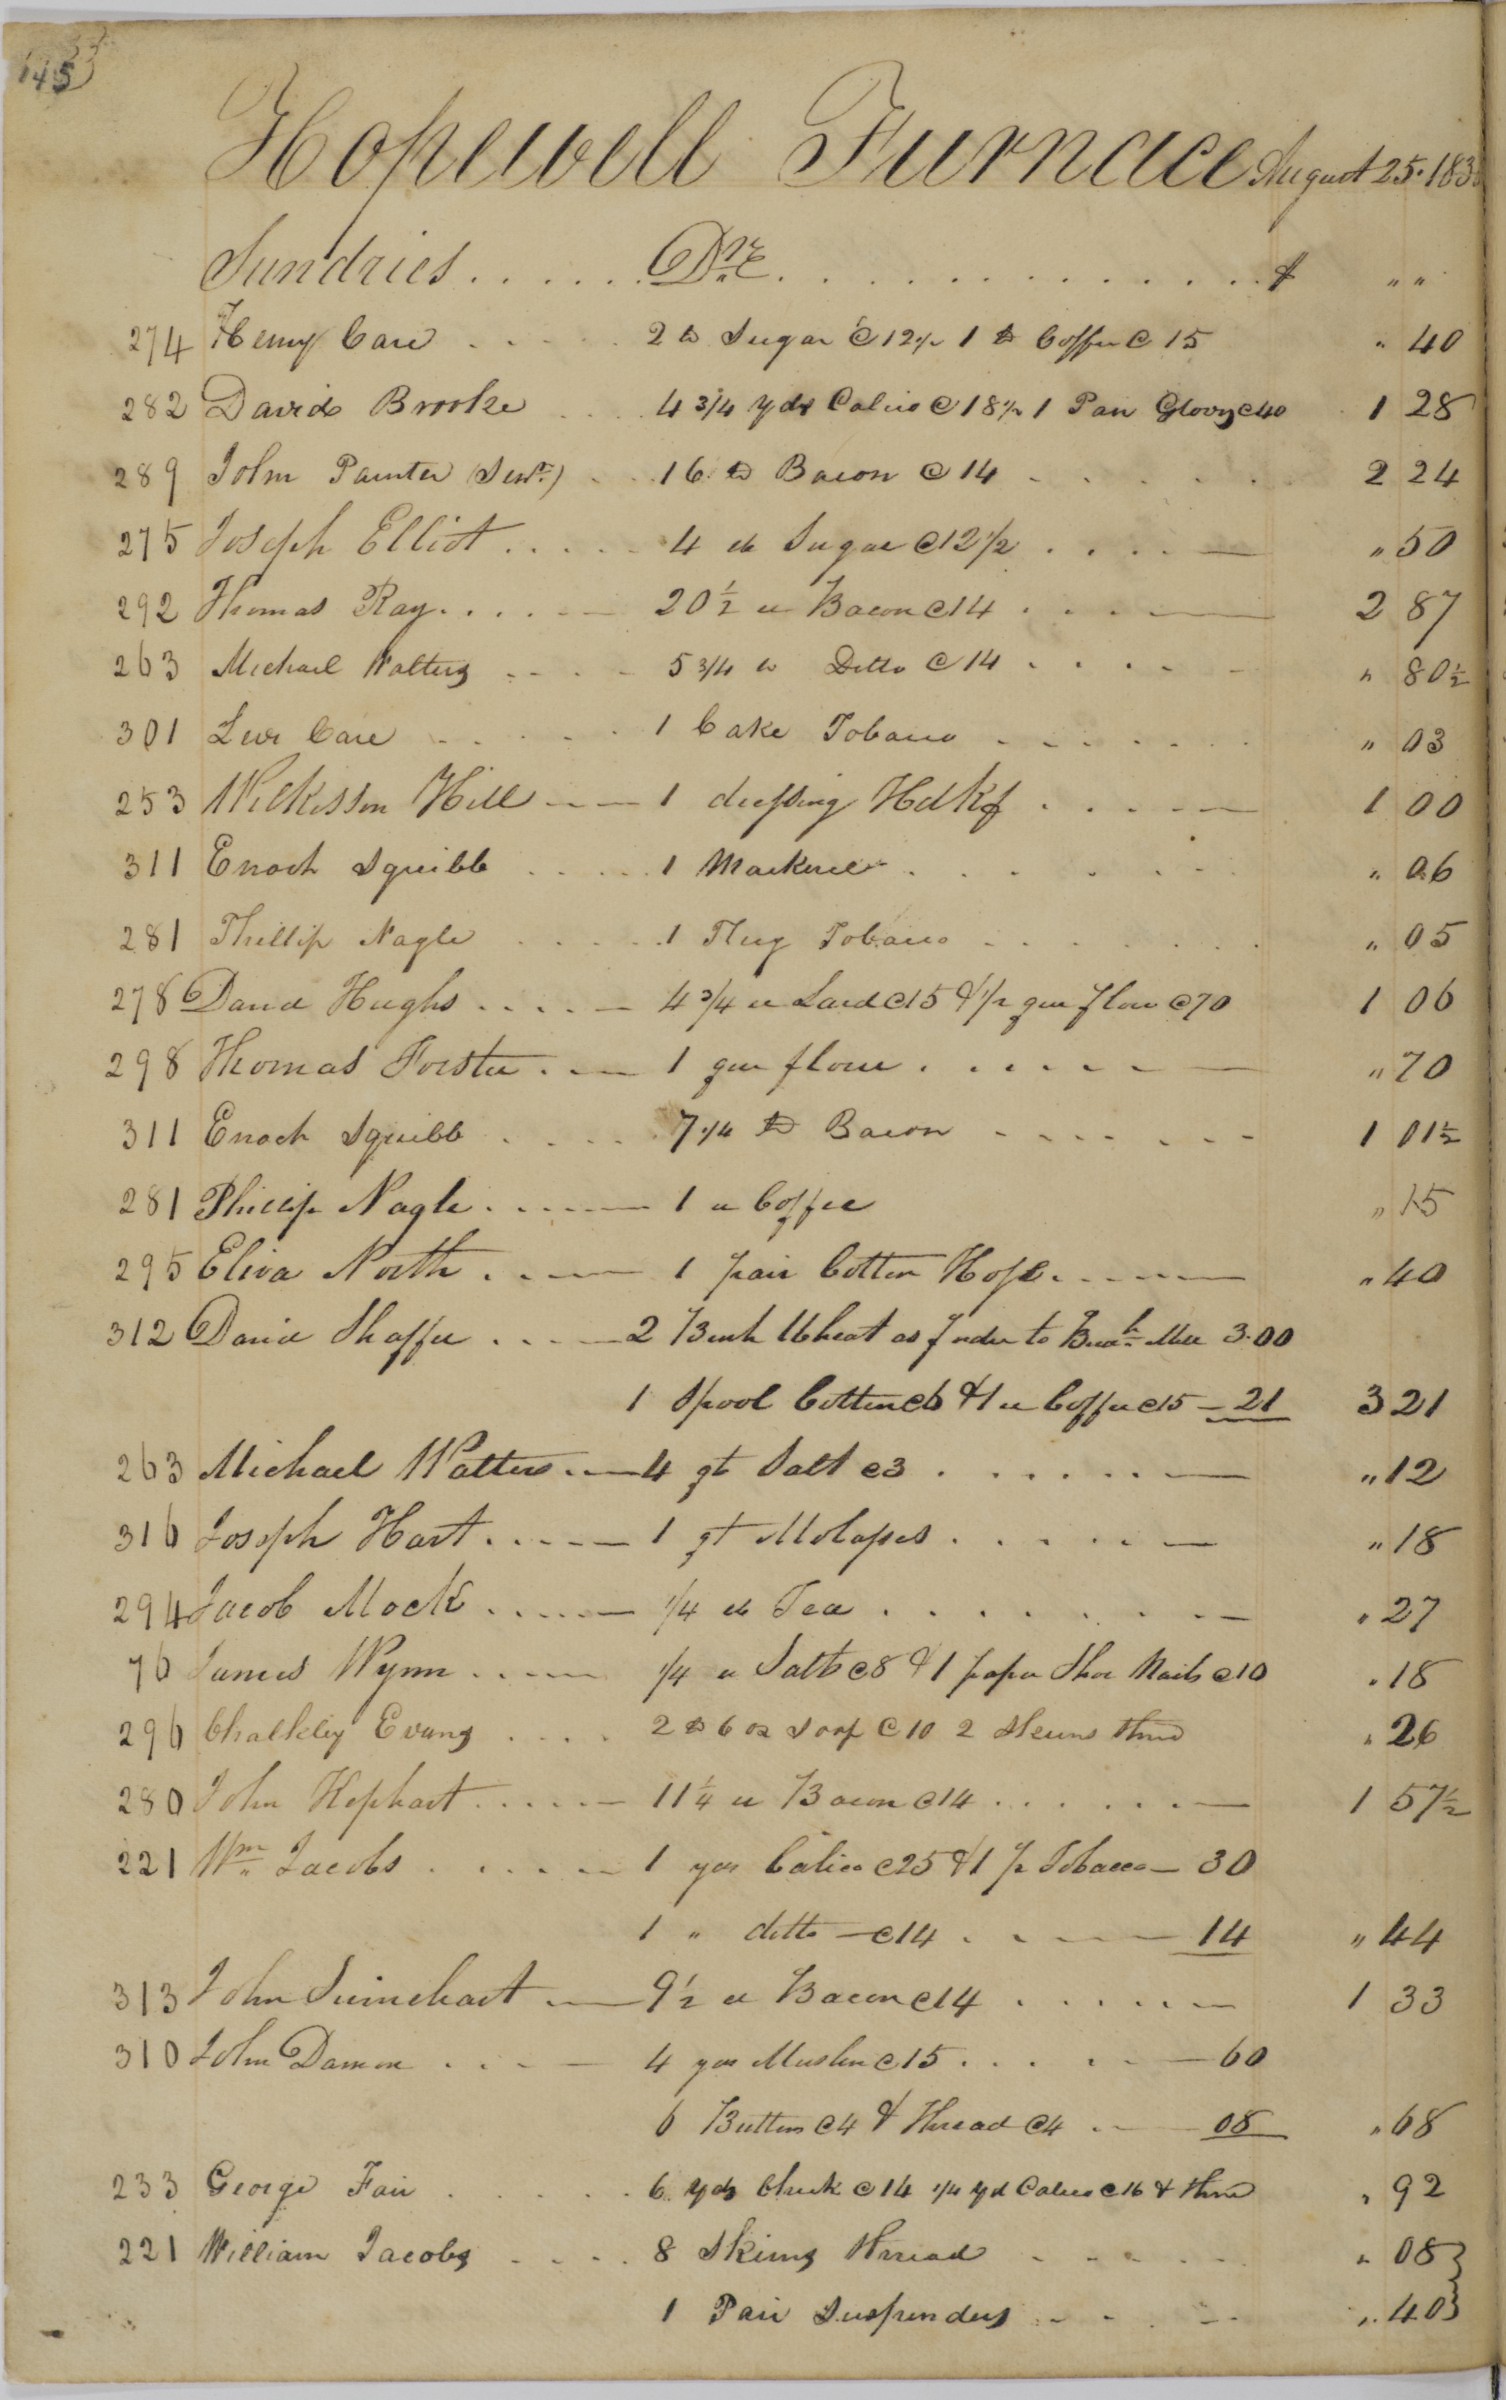 145
Hopewell Furnace August 25. 183
Sundries . . . . . . Drs . . . . . . . . . . . . . $ " "
274 Henry Care . . . . . 2 lb Sugar @ 12½ 1 lb Coffee @ 15 " 40
282 David Brooke . . . . 4 3/4 yds Calico @ 18½ 1 Pair Gloves @ 40 1 28
289 John Painter (Senr.) . . . 16 lb Bacon @ 14 . . . . . 2 24
275 Joseph Elliot . . . . . 4 lb Sugar @ 12 1/2 . . . . — " 50
292 Thomas Ray . . . . . — 20 1/2 lb Bacon @ 14 . . . . — 2 87
263 Michael Walters . . . . 5 3/4 lb Ditto @ 14 . . . . . " 80 1/2
301 Levi Care . . . . . 1 Cake Tobacco . . . . . . . " 03
253 Wilkisson Hill — — 1 dressing Hdkf . . . . . — 1 00
311 Enoch Squibb . . . . . 1 Mackerel . . . . . . . " 06
281 Phillip Nagle . . . . . 1 Plug Tobacco . . . . . . . " 05
278 David Hughs . . . . . — 4 3/4 lb Lard @ 15 & 1/2 qur flour @ 70 1 06
298 Thomas Forster . . — 1 qur flour . . . . . . — " 70
311 Enoch Squibb . . . . . 7 1/4 lb Bacon . . . . . . . 1 01 1/2
281 Phillip Nagle . . . . — 1 lb Coffee " 15
295 Eliva North . . . — 1 pair Cotton Hose . . . . — " 40
312 David Shaffer . . . — 2 Bush Wheat as order to Buch Mill 3.00
1 Spool Cotton @ 6 & 1 lb Coffee @ 15 — 21 3 21
263 Michael Walters . — 4 qt Salt @ 3 . . . . . . — " 12
316 Joseph Hart . . . . — 1 qt Molasses . . . . . — " 18
294 Jacob Mock . . . . — 1/4 lb Tea . . . . . . . . — " 27
76 James Wynn . . . . — 1/4 lb Salts @ 8 & 1 paper Shoe Nails @ 10 " 18
296 Chalkley Evans . . . . 2 lb 6 oz Soap @ 10 2 Skeins thread " 26
280 John Kephart . . . . . — 11 1/4 lb Bacon @ 14 . . . . . . — 1 57 1/2
221 Wm Jacobs . . . . . — 1 yd Calico @ 25 & 1 p Tobacco — 30
1 " ditto — @ 14 . . . — 14 " 44
313 John Swinehart . — 9 1/2 lb Bacon @ 14 . . . . . . — 1 33
310 John Damon . . . — 4 yds Muslin @ 15 . . . . . — 60
6 Buttons @ 4 & Thread @ 4 . . — 08 " 68
233 George Fair . . . . . . 6 yds Check @ 14 1/4 yd Calico @ 16 & thread " 92
221 William Jacobs . . . . 8 Skeins thread . . . . . . " 08
1 Pair Suspenders . . . . . " 40